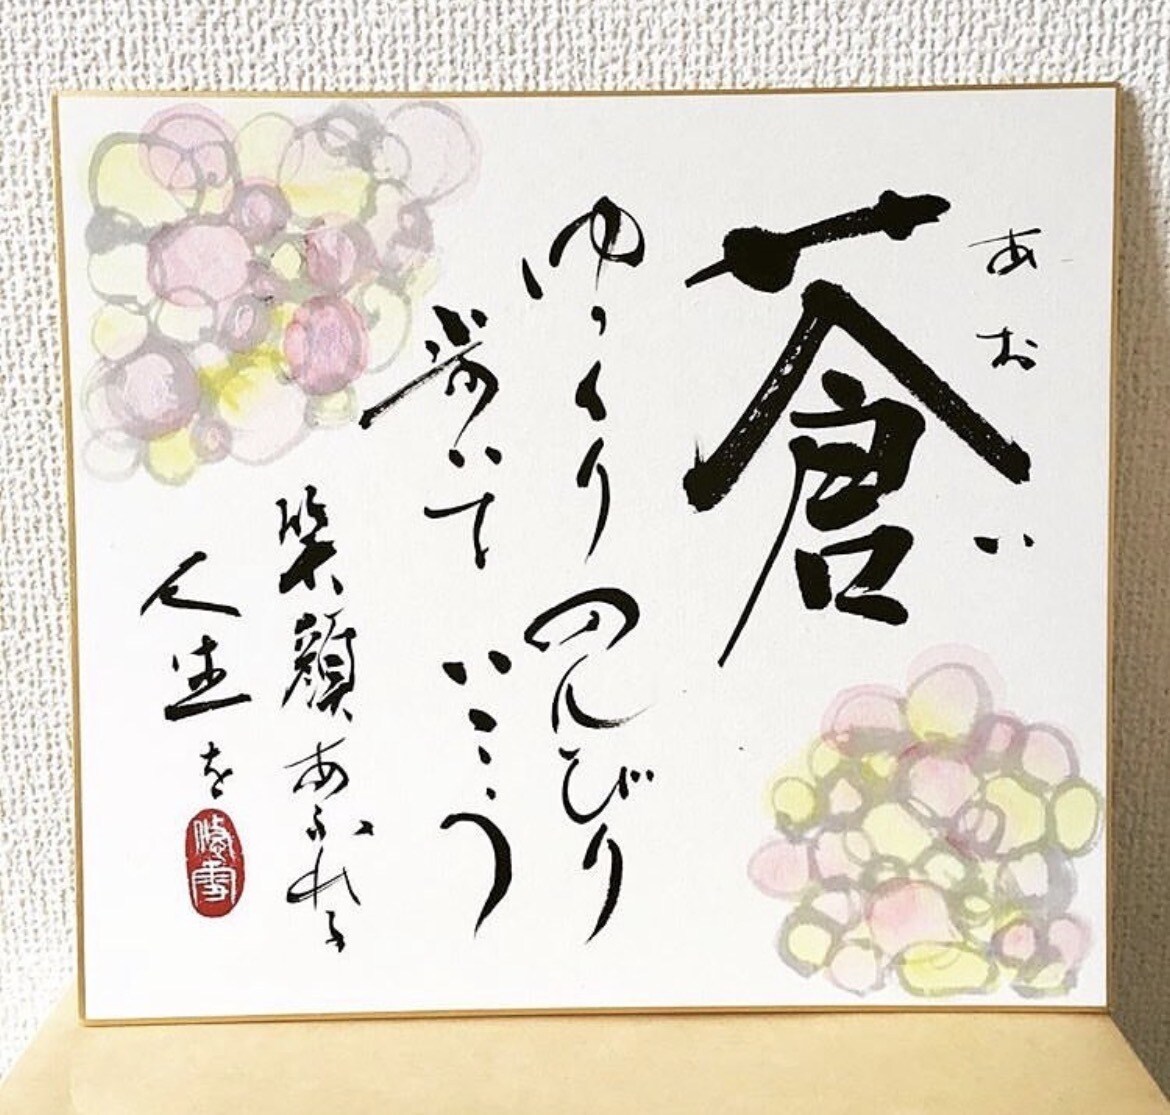 あおい
蒼
ゆっくりのんびり
歩いていこう
笑顔あふれる
人生を
悠雪